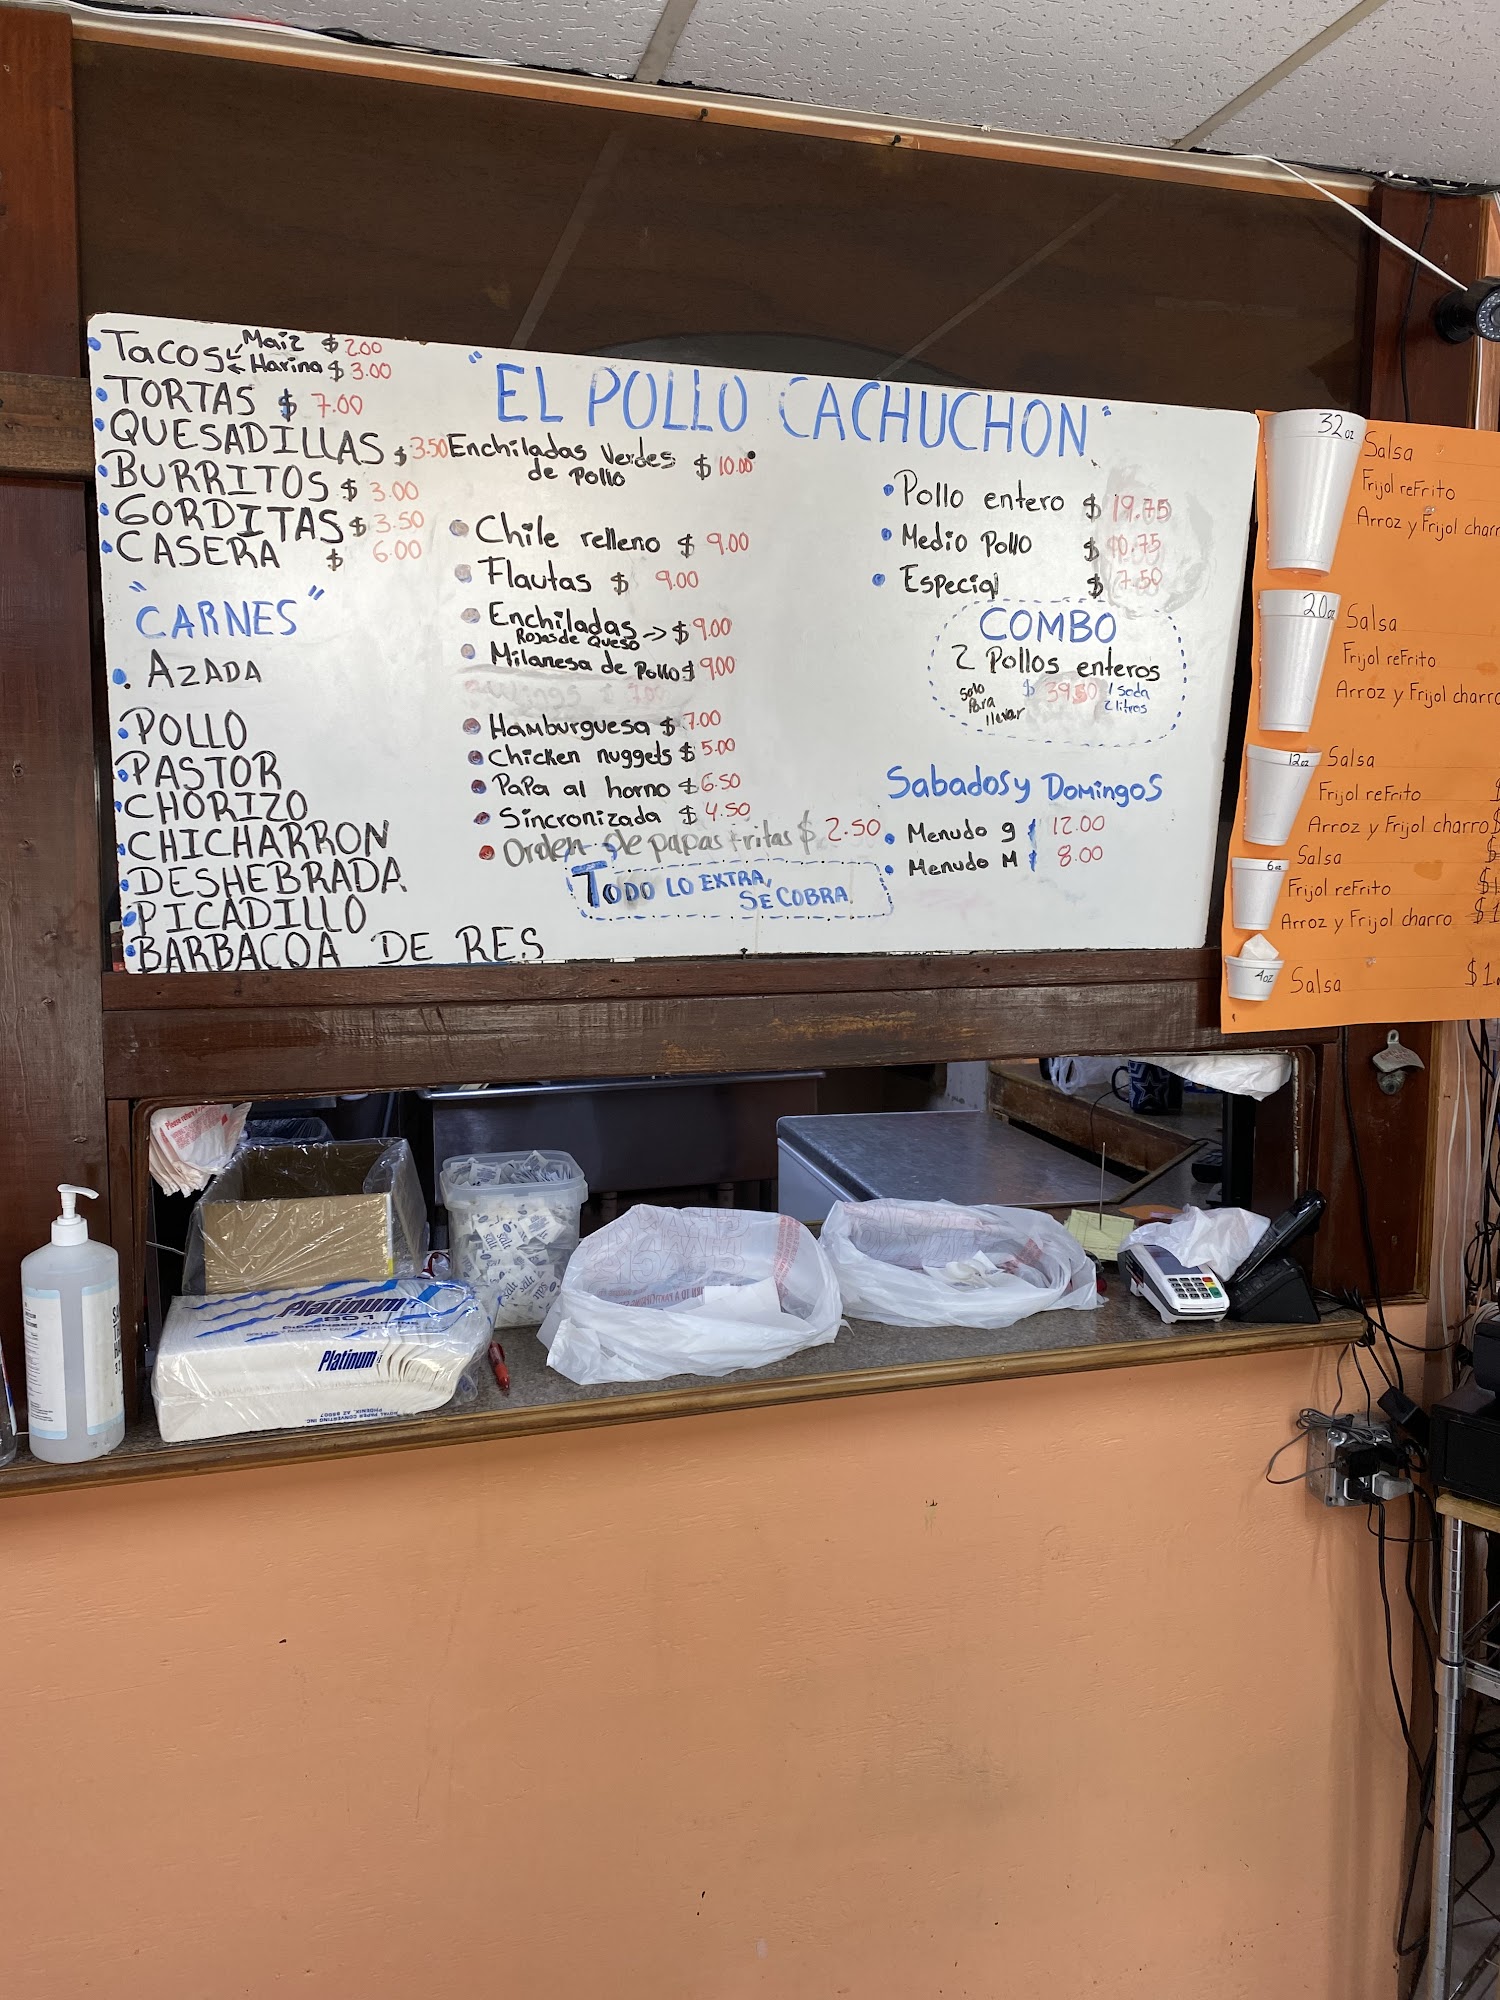 Tacos Maiz $2.00
Harina $3.00
TORTAS $ 7.00
QUESADILLAS $3.50
BURRITOS $ 3.00
GORDITAS $ 3.50
CASERA $ 6.00
"CARNES"
AZADA
POLLO
PASTOR
CHORIZO
CHICHARRON
DESHEBRADA
PICADILLO
BARBACOA DE RES
"EL POLLO CACHUCHON"
Enchiladas Verdes $ 10.00
de Pollo
Chile relleno $ 9.00
Flautas $ 9.00
Enchiladas -> $ 9.00
Rojas de Queso
Milanesa de Pollo $ 9.00
Hamburguesa $ 7.00
Chicken nuggets $ 5.00
Papa al horno $ 6.50
Sincronizada $ 4.50
Orden de papas fritas $ 2.50
TODO LO EXTRA,
SE COBRA.
Pollo entero $ 19.75
Medio Pollo $ 10.75
Especial $ 7.50
COMBO
2 Pollos enteros
Solo Para llevar
$ 39.50
1 soda
2 litros
Sabados y Domingos
Menudo g $ 12.00
Menudo M $ 8.00
32 oz
Salsa
Frijol reFrito
Arroz y Frijol charr
20 oz
Salsa
Frijol reFrito
Arroz y Frijol charro
12 oz
Salsa
Frijol reFrito $
Arroz y Frijol charro $
6 oz
Salsa $
Frijol reFrito $1
Arroz y Frijol charro $1
4 oz
Salsa $1.
Platinum
801
DISPENSER NAPKINS
Platinum
ROYAL PAPER CONVERTING INC.
PHOENIX, AZ 85007
salt
salt
salt